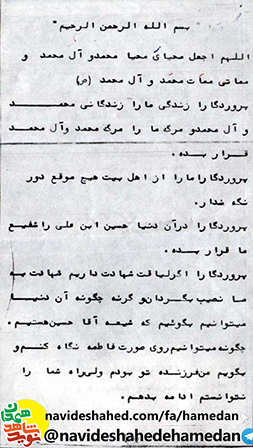 بسم الله الرحمن الرحیم"
اللهم اجعل محیای محیا محمدو آل محمد و
مماتی ممات محمد و آل محمد (ص)
پروردگارا زندگی ما را زندگانی محمد
و آل محمدو مرگ ما را مرگ محمد وآل محمد
قرار بده.
پروردگارا مارا از اهل بیت هیچ موقع دور
نگه ندار.
پروردگارا درآن دنیا حسین ابن علی راشفیع
ما قرار بده.
پروردگارا اگرلیاقت شهادت داریم شهادت به
ما نصیب بگردان‌و گرنه چگونه آن دنیا
میتوانیم بگوئیم که شیعه آقا حسین‌هستیم.
چگونه‌میتوانیم‌روی مورت فاطمه نگاه کنم‌و
بگویم من‌فرزنده تو بودم ولی‌راه شما را
نتوانستم ادامه بدهم.
نوید شاهد همدان
navideshahed.com/fa/hamedan
@navideshahedehamedan